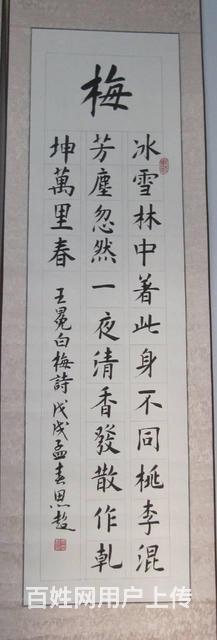 梅
冰雪林中著此身不同桃李混
芳塵忽然一夜清香發散作乾
坤萬里春
王冕白梅詩戊戌孟春思超
百姓网用户上传